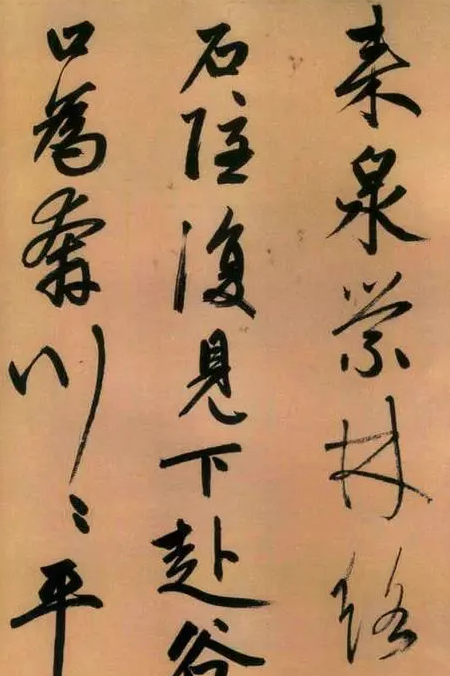 来泉縈林絡
石隱復見下赴谷
口為奔川〻平